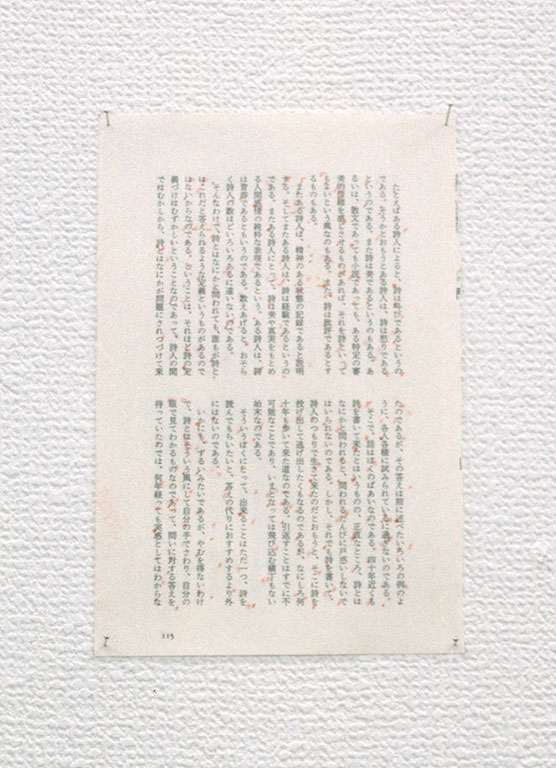 たとえばある詩人によると、詩は叫びであるというの
である。そうかとおもうとある詩人は、詩は怒りである
というのである。また詩は美であるというのもある。あ
るいは、散文であっても小説であっても、ある特定の審
美的価値を感じさせるものがあれば、それを詩といって
もよいという風なのもある。また、詩は批評であるとす
るものもある。
またある詩人は、精神のある状態の記録であると説明
する。そしてまたある詩人は、詩は経験であるというの
である。またある詩人にとって、詩は美や真実をもとめ
る人間感情の純粋な表現であるという。ある詩人は、詩
は青春であるともいうのである。数えあげると、おそら
く詩人の数ほどいろいろあるに違いないのである。
そんなわけで、詩とはなにかと問われても、誰もが詩と
はこれだと答えられるような定義というものがあるので
はないからなのである。ということは、それほど詩の定
義づけはむずかしいということなのであって、詩人の間
でもむかしから、詩とはなにかが問題にされつづけて来
たのであるが、その答えは前に述べたいろいろの例のよ
うに、各人各様に試みられているに過ぎないのである。
そこで、話はぼくのばあいなのである。四十年近くも
詩を書いて来たとはいうものの、正直なところ、詩とは
なにかと問われると、問われるたんびに戸惑いしないで
はいられないのである。しかし、それでも詩を書いて、
詩人のつもりで生きて来たのだとおもうと、そこに詩を
投げ出して逃げ出したくもなるのであるが、なにしろ何
十年も歩いて来た道なのである。引返すことはすでに不
可能なことであり、いまとなっては飛び込む横丁もない
始末なのである。
そういうぼくにとって、出来ることはただ一つ、詩を
読んでもらいたいと、答えの代りにおすすめするより外
にはないのである。
いかにも、ずるいみたいであるが、やむを得ないわけ
で、詩とはそういう風にして自分の手でさわり、自分の
眼で見てわかるものなのであって、問いに対する答えを
待っていたのでは、何年経っても実感としてはわからな
115